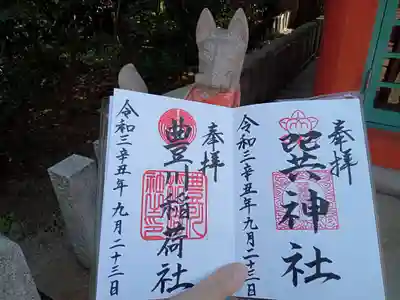 奉拝
巽神社
令和三辛丑年九月二十三日
奉拝
豊川稲荷社
令和三辛丑年九月二十三日